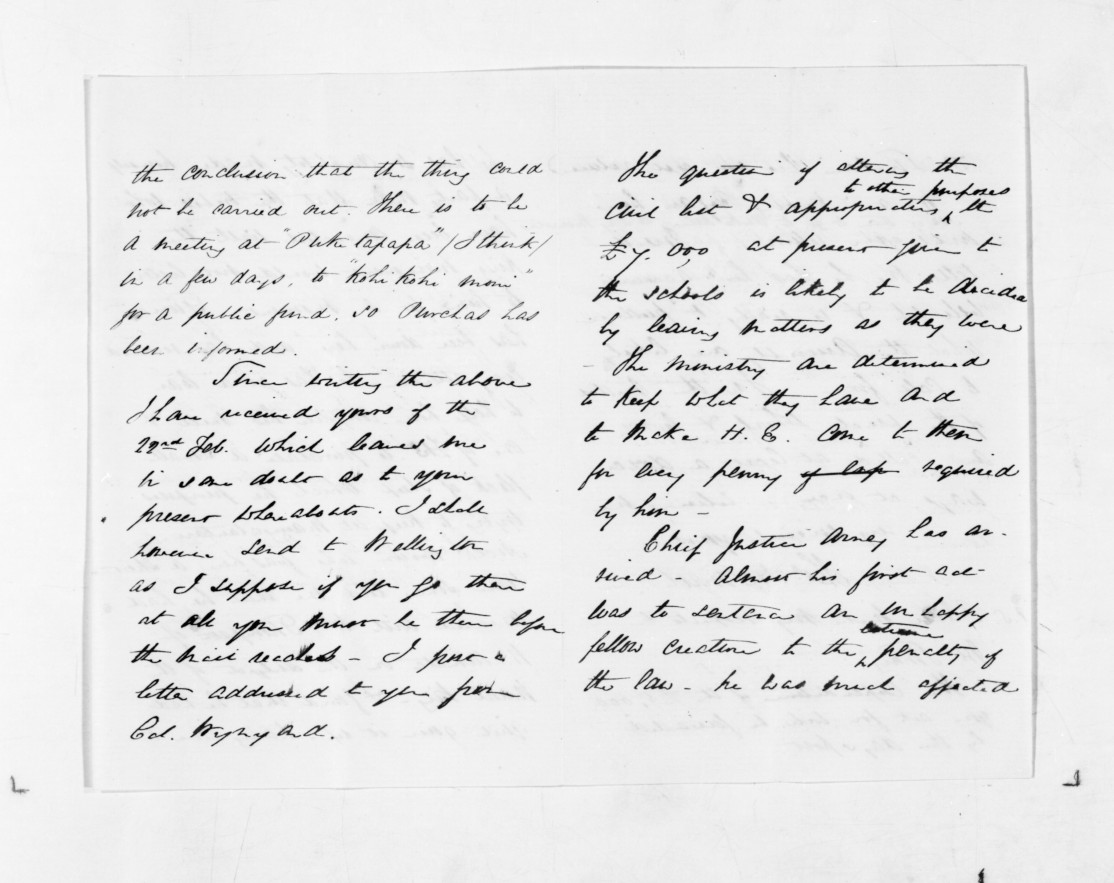 the conclusion that the thing could
not be carried out. There is to be
a meeting at "Puketapapa" /I think/
in a few days, to "Kohikohi moni"
for a public fund. so Purchas has
been informed.
Since writing the above
I have received yours of the
22nd Feb. which leaves me
in some doubt as to your
present whereabouts. I shall
however send to Wellington
as I suppose if you go there
at all you must be there before
the mail reaches - I post a
letter addressed to you from
Col. Wynyard.
The question of altering the
civil list & appropriating to other purposes the
£7,000 at present given to
the schools is likely to be decided
by leaving matters as they were
- The ministry are determined
to keep what they have and
to make H. E. come to them
for every penny required
by him -
Chief Justice Arney has ar-
rived - almost his first act
was to sentence an unhappy
fellow creature to the extreme penalty of
the law - he was much affected